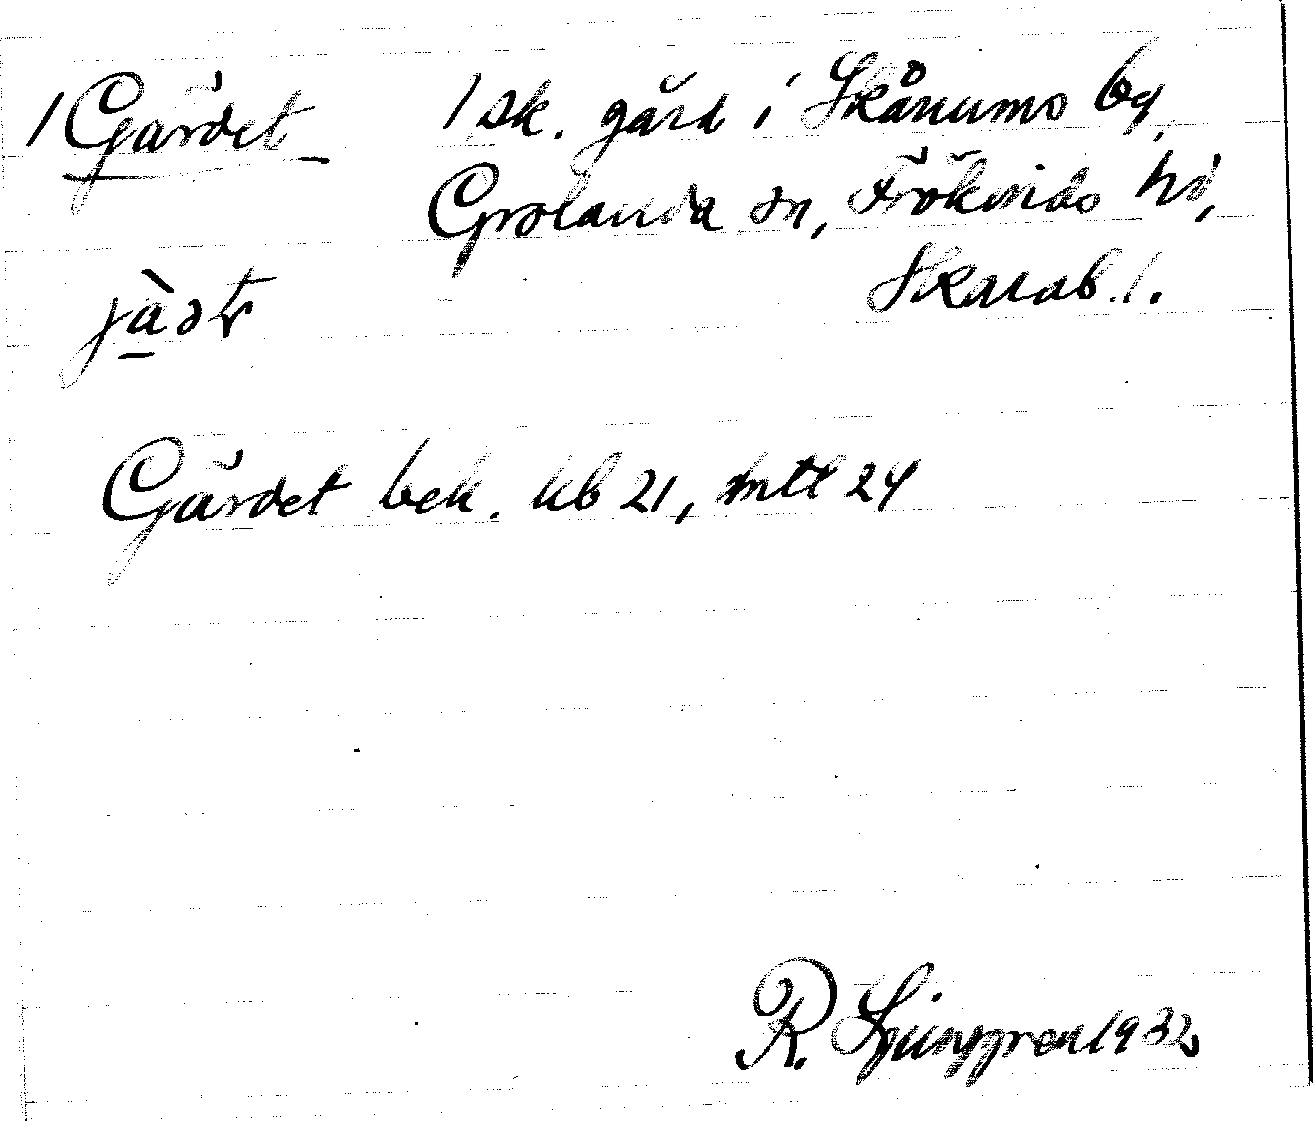 1 Gärdet 1 sk. gård i Skånums by,
Grolanda sn, Frökinds hd,
Skarab. l.
jàst
Gärdet bek. kb 21, mtl 24
R. Ljunggren 1932